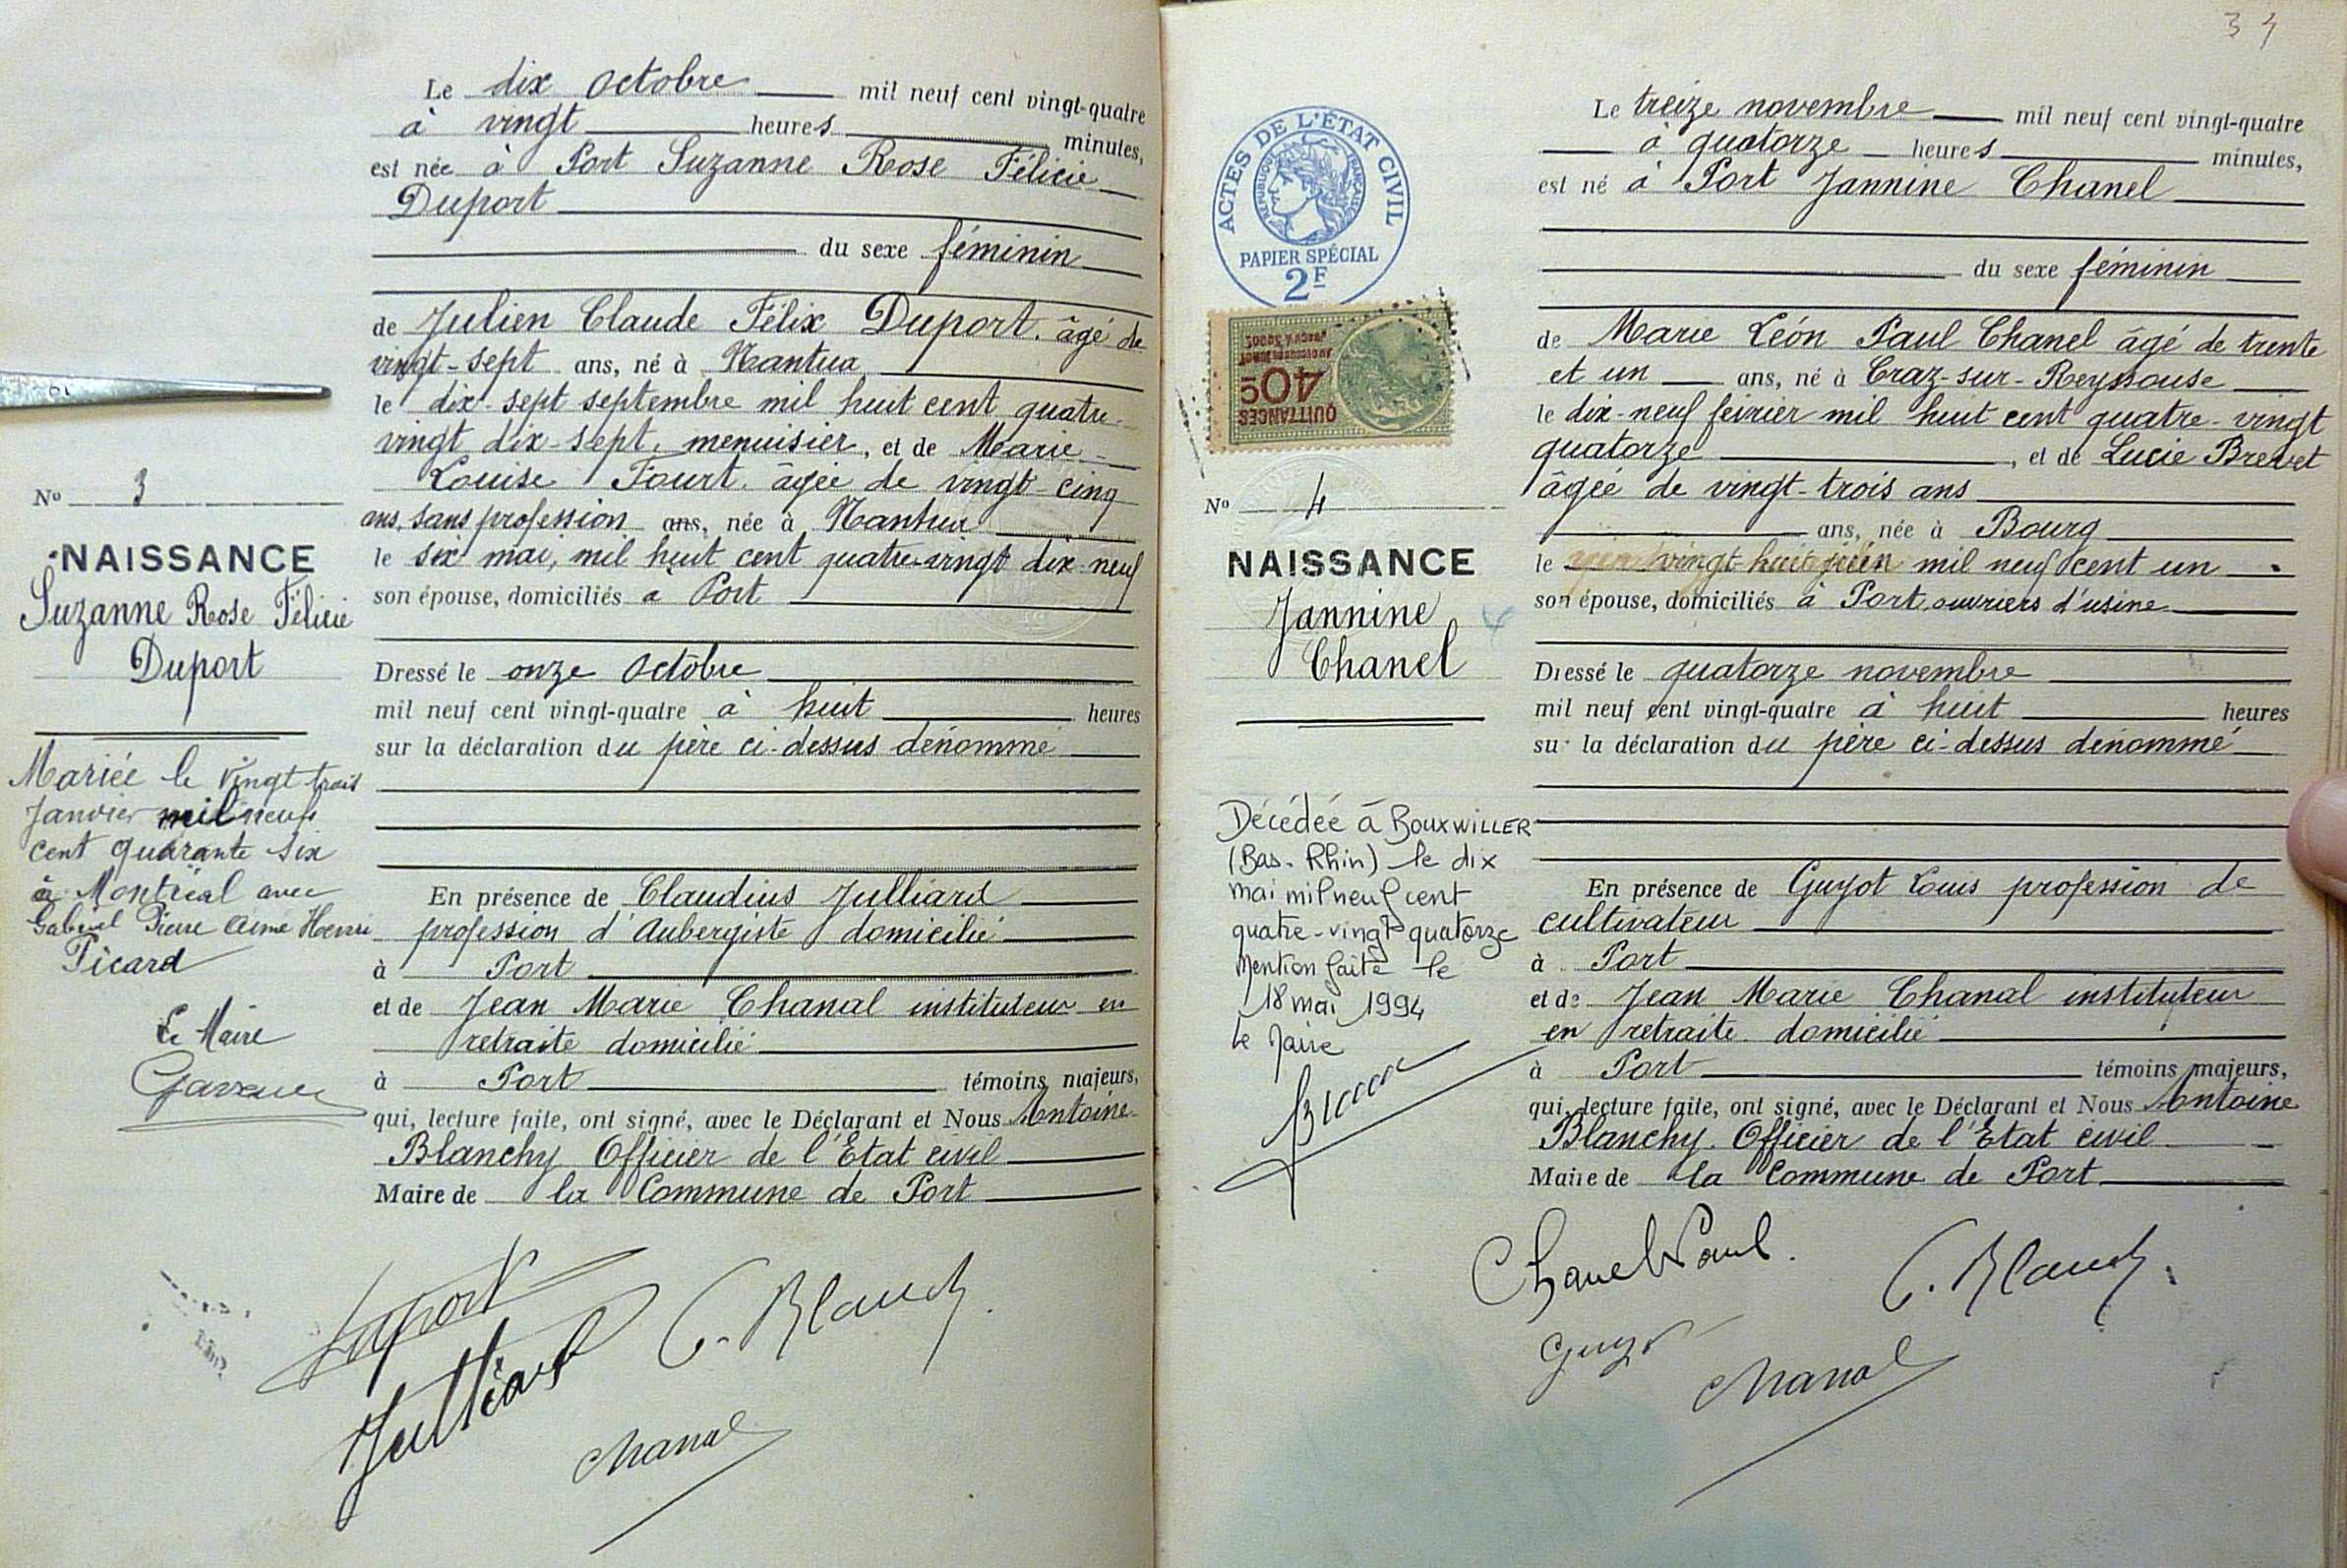 Le dix octobre mil neuf cent vingt-quatre
à vingt heures minutes,
est née à Port Suzanne Rose Félicie
Duport
du sexe féminin
de Julien Claude Félix Duport, âgé de
vingt-sept ans, né à Nantua
le dix-sept septembre mil huit cent quatre-
vingt dix-sept, menuisier, et de Marie-
Louise Fourt, âgée de vingt-cinq
ans, sans profession ans, née à Nantua
le six mai, mil huit cent quatre-vingt dix-neuf
son épouse, domiciliés à Port
Dressé le onze octobre
mil neuf cent vingt-quatre à huit heures
sur la déclaration du père ci-dessus dénommé
En présence de Claudius Julliard
profession d'Aubergiste domicilié
à Port
et de Jean Marie Chanal instituteur en
retraite domicilié
à Port témoins majeurs,
qui, lecture faite, ont signé, avec le Déclarant et Nous Antoine
Blanchy Officier de l'Etat civil
Maire de la Commune de Port
Duport
Julliard
C. Blanchy
Chanal
No 3
NAISSANCE
Suzanne Rose Félicie
Duport
Mariée le vingt trois
Janvier mil neuf
cent quarante six
à Montréal avec
Gabriel Pierre Aimé Henri
Picard
Le Maire
34
ACTES DE L'ÉTAT CIVIL
RÉPUBLIQUE FRANÇAISE
PAPIER SPÉCIAL
2F
QUITTANCES
40c
No 4
NAISSANCE
Jannine
Chanel
Décédée à BOUXWILLER
(Bas-Rhin) le dix
mai mil neuf cent
quatre-vingt quatorze
Mention faite le
18 mai 1994
le Maire
Le treize novembre mil neuf cent vingt-quatre
à quatorze heures minutes,
est né à Port Jannine Chanel
du sexe féminin
de Marie Léon Paul Chanel âgé de trente
et un ans, né à Craz-sur-Reyssouse
le dix-neuf février mil huit cent quatre-vingt
quatorze, et de Lucie Brevet
âgée de vingt-trois ans
ans, née à Bourg
le vingt-huit juin mil neuf cent un
son épouse, domiciliés à Port, ouvriers d'usine
Dressé le quatorze novembre
mil neuf cent vingt-quatre à huit heures
sur la déclaration du père ci-dessus dénommé
En présence de Guyot Louis profession de
cultivateur
à Port
et de Jean Marie Chanal instituteur
en retraite domicilié
à Port témoins majeurs,
qui, lecture faite, ont signé, avec le Déclarant et Nous Antoine
Blanchy Officier de l'Etat civil
Maire de la Commune de Port
Chanel Paul.
C. Blanchy
Guyot
Chanal